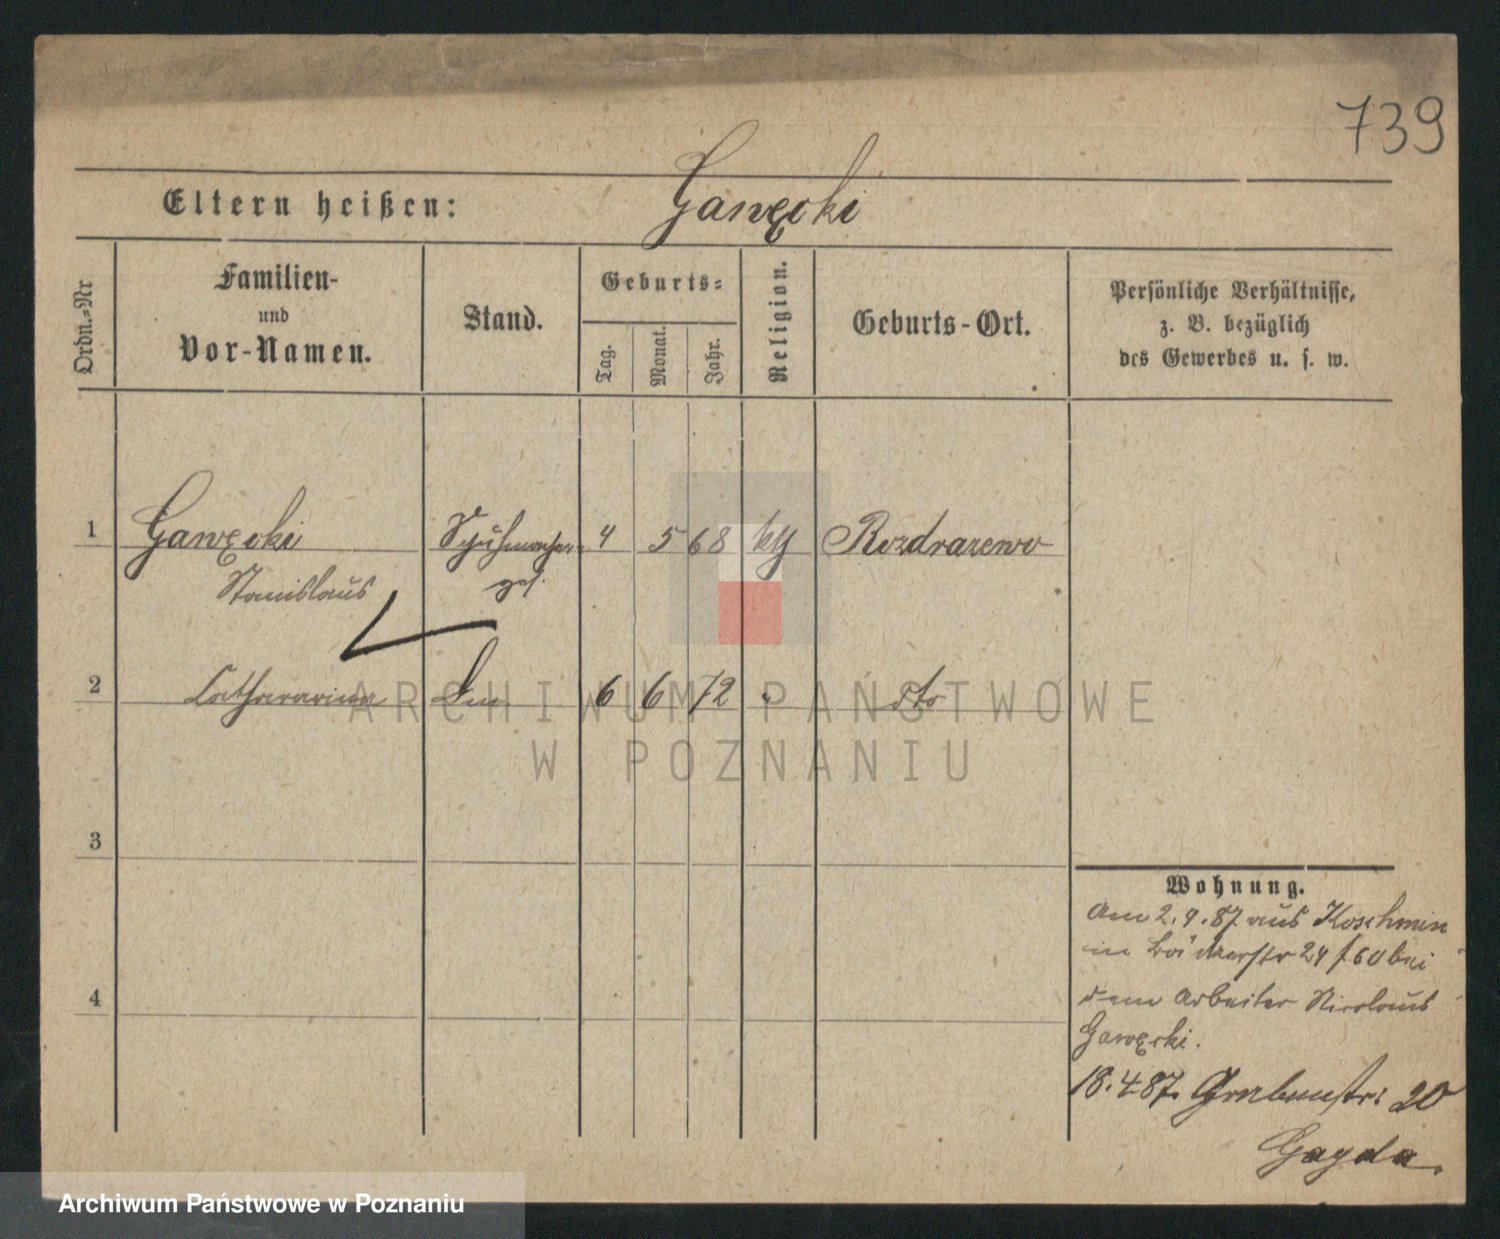 739
Eltern heißen: Gawęcki
Ordn.-Nr
Familien-
und
Vor-Namen.
Stand.
Geburts-
Tag.
Monat.
Jahr.
Religion.
Geburts-Ort.
Persönliche Verhältnisse,
z. B. bezüglich
des Gewerbes u. s. w.
1 Gawęcki Schuhmacher- 4 5 68 Rozdrazewo
Stanislaus ges.
2 Catharina 6 6 72 " dto
3
4
Wohnung.
Am 2.9.87 aus Koschmin
in Bäckerstr 24/60 bei
dem Arbeiter Nicolaus
Gawęcki.
18.4.87. Grabenstr: 20
Gayda.
ARCHIWUM PAŃSTWOWE
W POZNANIU
Archiwum Państwowe w Poznaniu